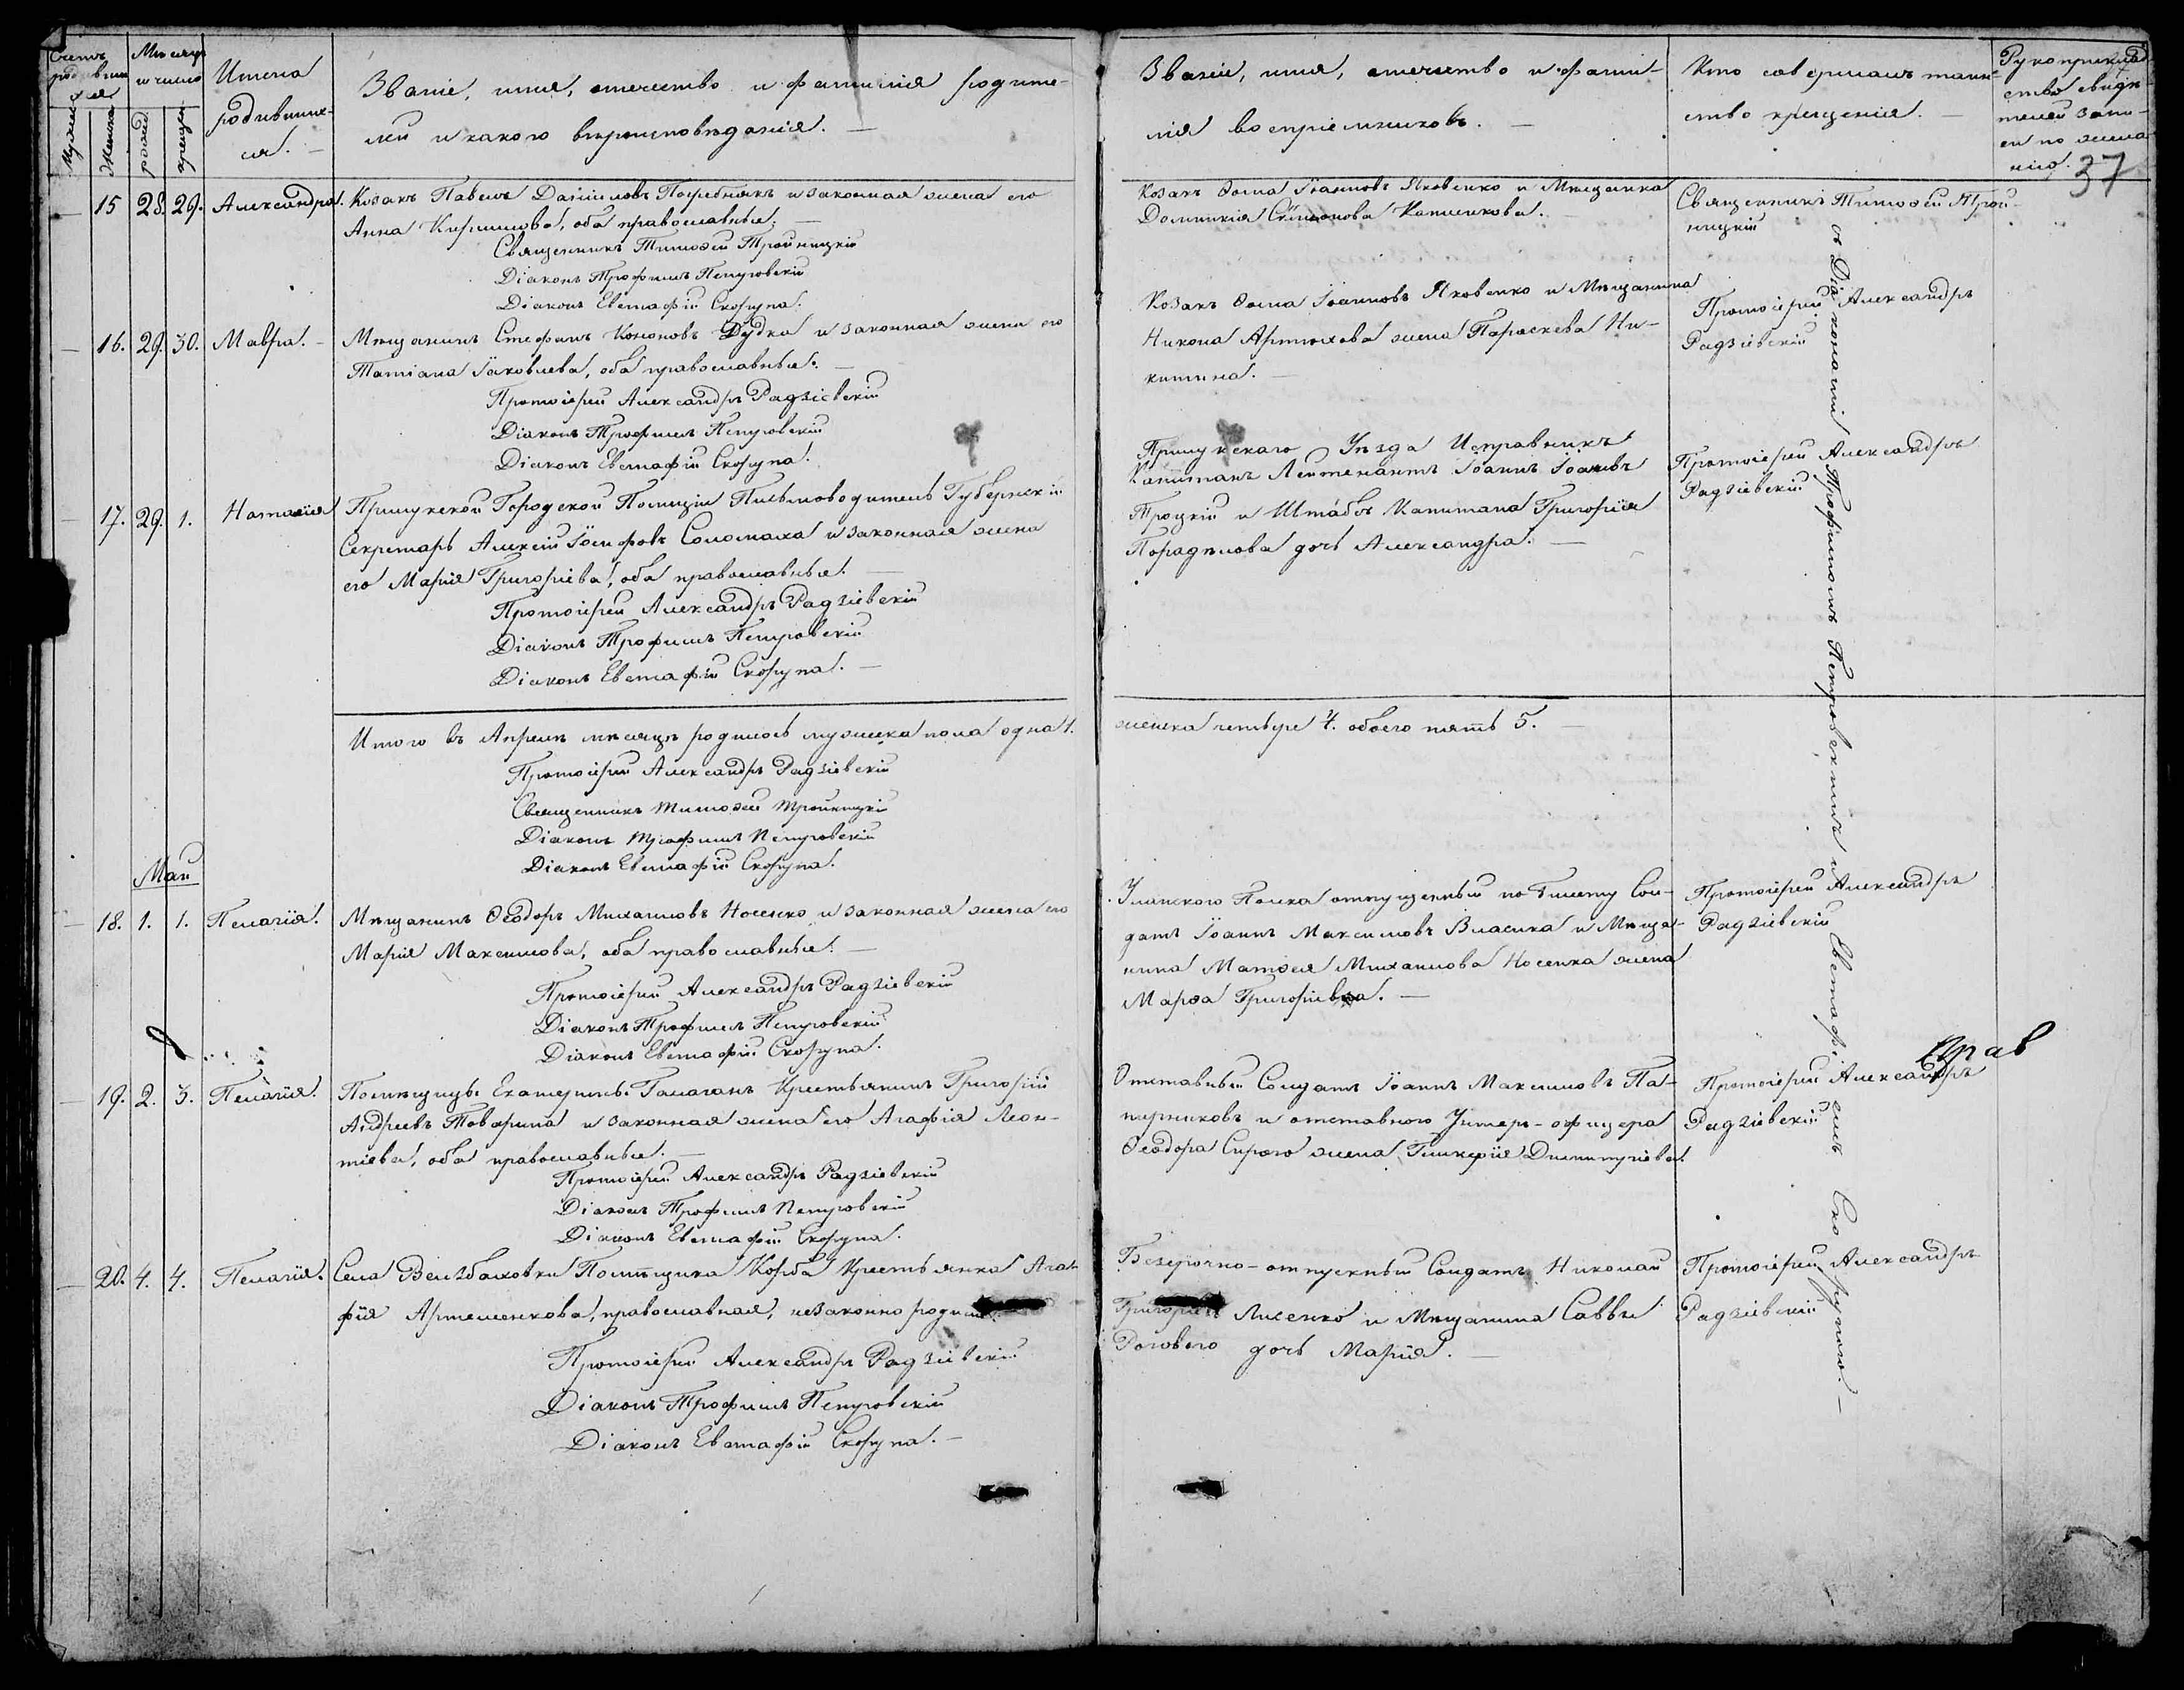 Счетъ родившихся
Мѣсяцъ и число
Имена родивших-
ся. —
Званіе, имя, отечество и фамилія родите-
лей и какого вѣроисповѣданія. —
Мужеска
Женска
рожд.
крещен.
Званіе, имя, отечество и фами-
лія воспріемниковъ. —
Кто совершалъ таин-
ство крещенія. —
Рукоприклад-
ство свидѣ-
телей запи-
си по жела-
нію.
37
15 28. 29. Александра. Козакъ Павелъ Даніиловъ Погребнякъ и законная жена его
Анна Кириллова, оба православные. —
Священникъ Тимоѳей Тройницкій
Діаконъ Трофимъ Петровскій
Діаконъ Евстафій Скорупа.
Козакъ Ѳома Іоанновъ Яковенко и Мѣщанка
Домникія Симонова Катенкова.
Священникъ Тимоѳей Трой-
ницкій
16. 29. 30. Мавра. — Мѣщанинъ Стефанъ Кононовъ Дудка и законная жена его
Татіана Іаковлева, оба православные. —
Протоіерей Александръ Радзіевскій
Діаконъ Трофимъ Петровскій
Діаконъ Евстафій Скорупа.
Козакъ Ѳома Іоанновъ Яковенко и Мѣщанина
Никона Артюхова жена Параскева Ни-
китина. —
Протоіерей Александръ
Радзіевскій
17. 29. 1. Наталія Прилукской Городской Полиціи Письмоводитель Губернскій
Секретарь Алексій Іосифовъ Соломаха и законная жена
его Марія Григоріева, оба православные. —
Протоіерей Александръ Радзіевскій
Діаконъ Трофимъ Петровскій
Діаконъ Евстафій Скорупа. —
Прилукскаго Уѣзда Исправникъ
Капитанъ Лейтенантъ Іоаннъ Іоановъ
Троцкій и Штабсъ Капитана Григорія
Порадѣлова дочь Александра. —
Протоіерей Александръ
Радзіевскій
Итого въ Апрелѣ мѣсяцѣ родилось мужеска пола одна 1.
женска четыре 4. обоего пять 5. —
Протоіерей Александръ Радзіевскій
Священникъ Тимоѳей Тройницкій
Діаконъ Трофимъ Петровскій
Діаконъ Евстафій Скорупа.
Май
18. 1. 1. Пелагія. Мѣщанинъ Ѳеодоръ Михаиловъ Носенко и законная жена его
Марія Максимова, оба православные. —
Протоіерей Александръ Радзіевскій
Діаконъ Трофимъ Петровскій
Діаконъ Евстафій Скорупа.
Уланского Полка отпущенный по билету Сол-
датъ Іоаннъ Максимовъ Власика и Мѣща-
нина Матѳея Михаилова Носенка жена
Марѳа Григоріева. —
Протоіерей Александръ
Радзіевскій
19. 2. 3. Пелагія. Помѣщицы Екатерины Галаганъ Крестьянинъ Григорій
Андреевъ Товарина и законная жена его Агафія Леон-
тіева, оба православные. —
Протоіерей Александръ Радзіевскій
Діаконъ Трофимъ Петровскій
Діаконъ Евстафій Скорупа.
Отставный Солдатъ Іоаннъ Максимовъ Па-
перниковъ и отставного Унтеръ-офицера
Ѳеодора Сирого жена Гликерія Димитріева.
Протоіерей Александръ
Радзіевскій
20. 4. 4. Пелагія. Села Вельбаховки Помѣщика Корба Крестьянка Ага-
фія Артеменкова, православная, незаконно
Протоіерей Александръ Радзіевскій
Діаконъ Трофимъ Петровскій
Діаконъ Евстафій Скорупа. —
Безсрочно-отпускный Солдатъ Николай
Лисенко и Мѣщанина Саввы
Рогового дочь Марія. —
Протоіерей Александръ
Радзіевскій
съ Діаконами Трофимомъ Петровскимъ и Евстафіемъ Скорупою. —